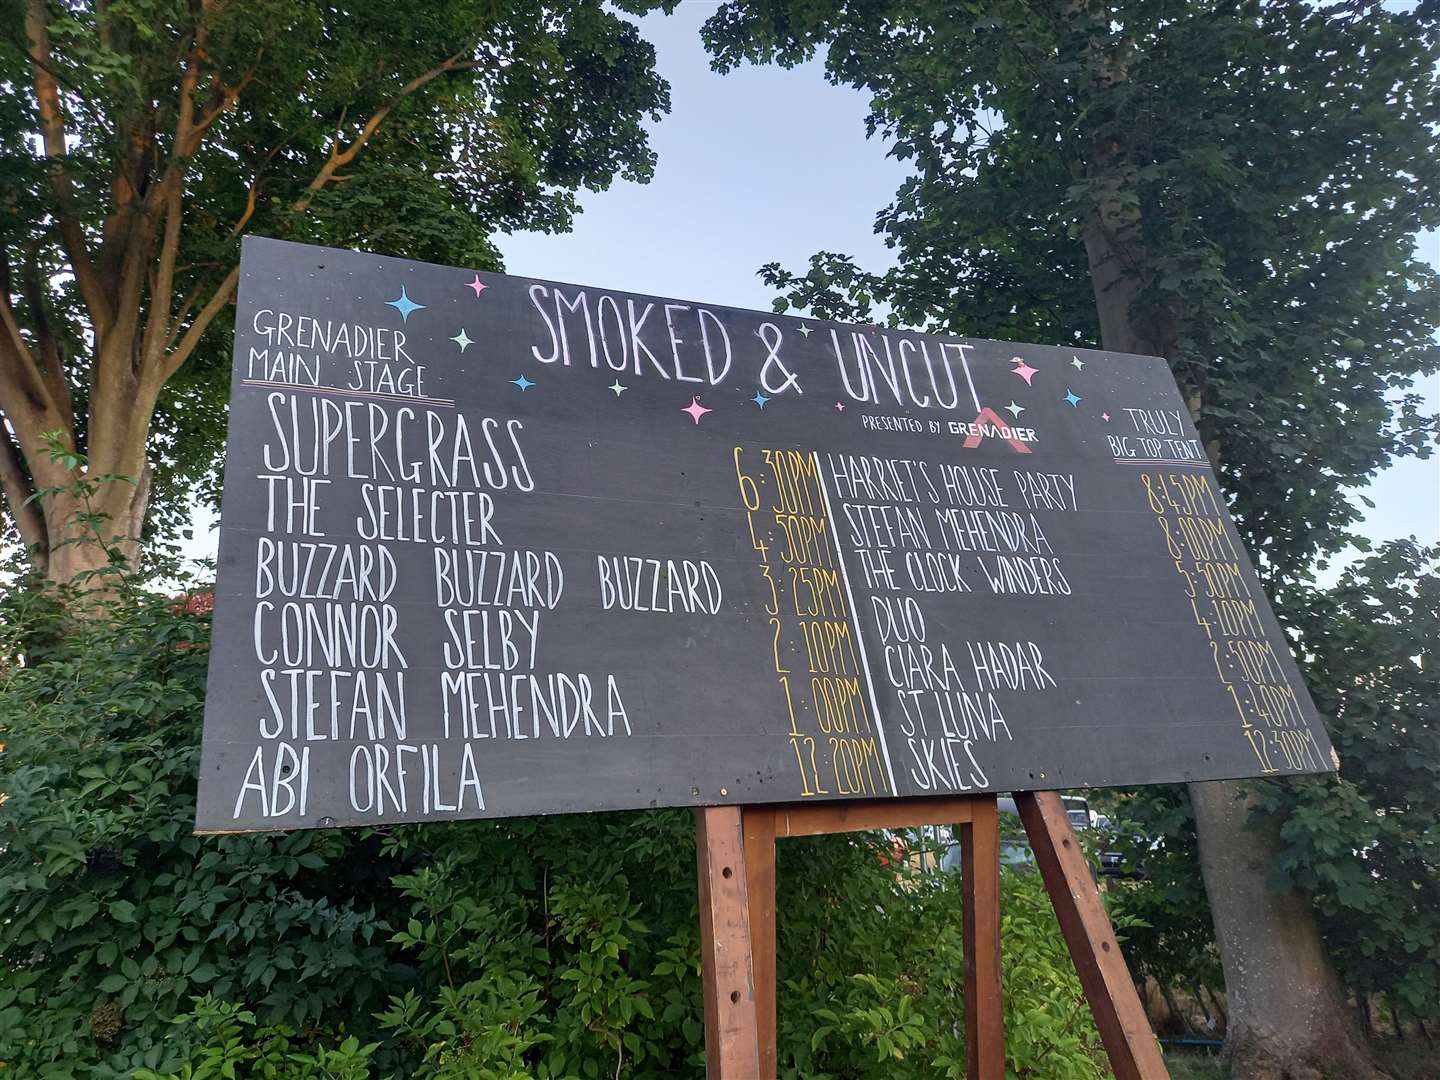 SMOKED & UNCUT
PRESENTED BY GRENADIER
GRENADIER
MAIN STAGE
SUPERGRASS 6:30PM
THE SELECTER 4:50PM
BUZZARD BUZZARD BUZZARD 3:25PM
CONNOR SELBY 2:10PM
STEFAN MEHENDRA 1:00PM
ABI ORFILA 12:20PM
TRULY
BIG TOP TENT
HARRIET'S HOUSE PARTY 8:45PM
STEFAN MEHENDRA 8:00PM
THE CLOCK WINDERS 5:50PM
DUO 4:10PM
CIARA HADAR 2:50PM
ST LUNA 1:40PM
SKIES 12:30PM